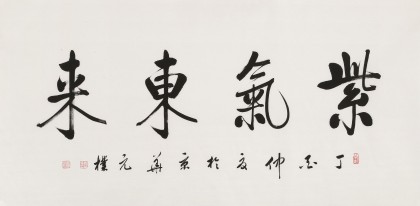 紫氣東来
丁亥仲夏於京華元樸